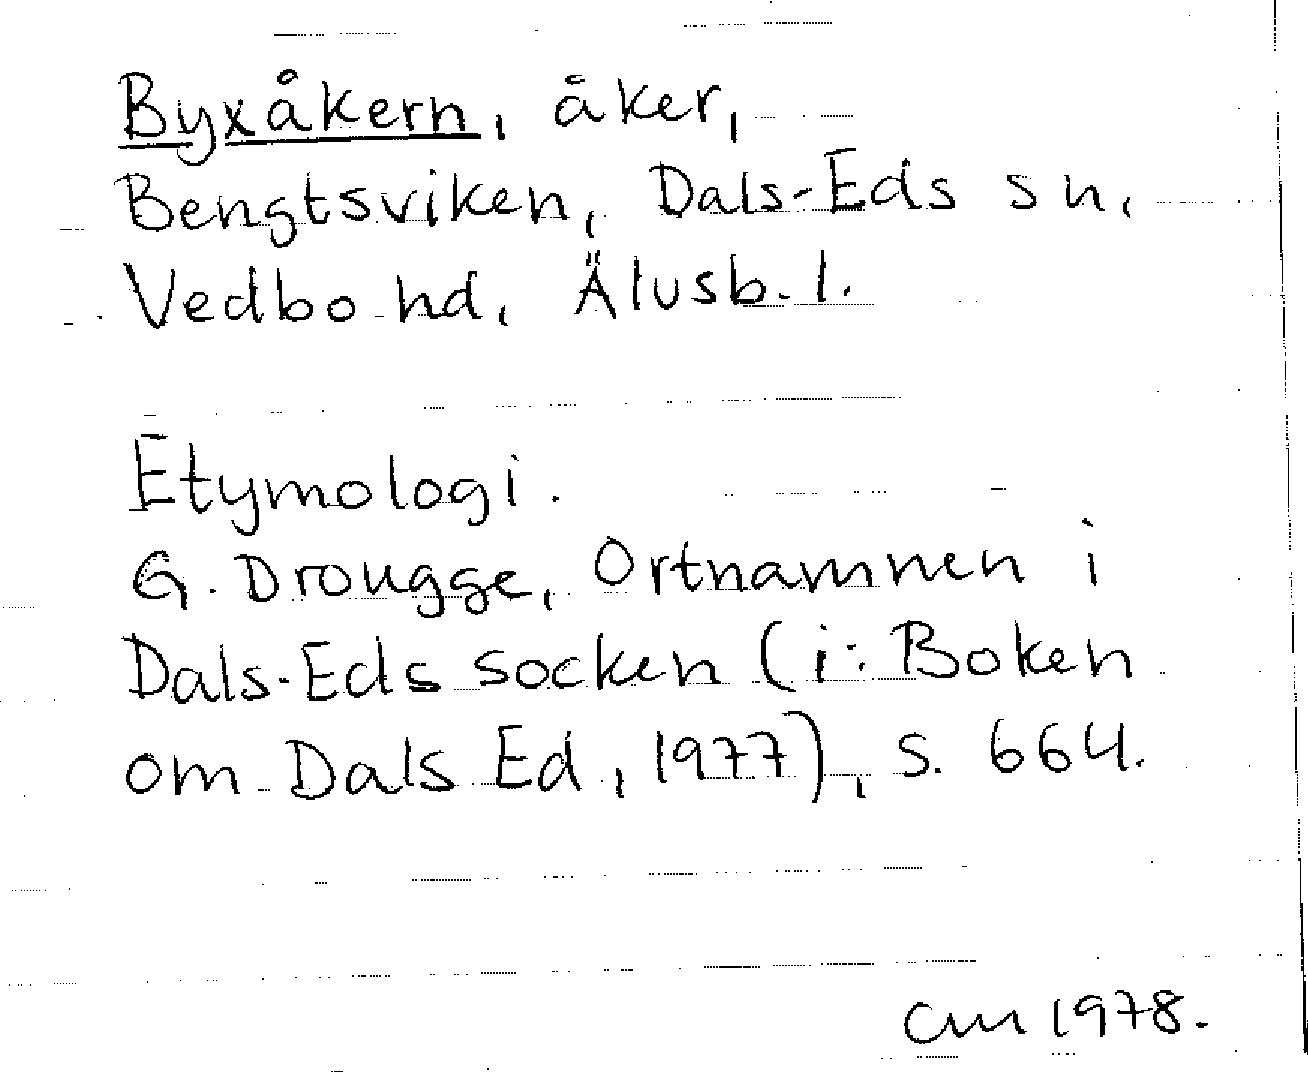 Byxåkern, åker,
Bengtsviken, Dals-Eds sn,
Vedbo hd, Älvsb. l.
Etymologi.
G. Drougge, Ortnamnen i
Dals-Eds socken (i: Boken
om Dals Ed, 1977), s. 664.
CM 1978.